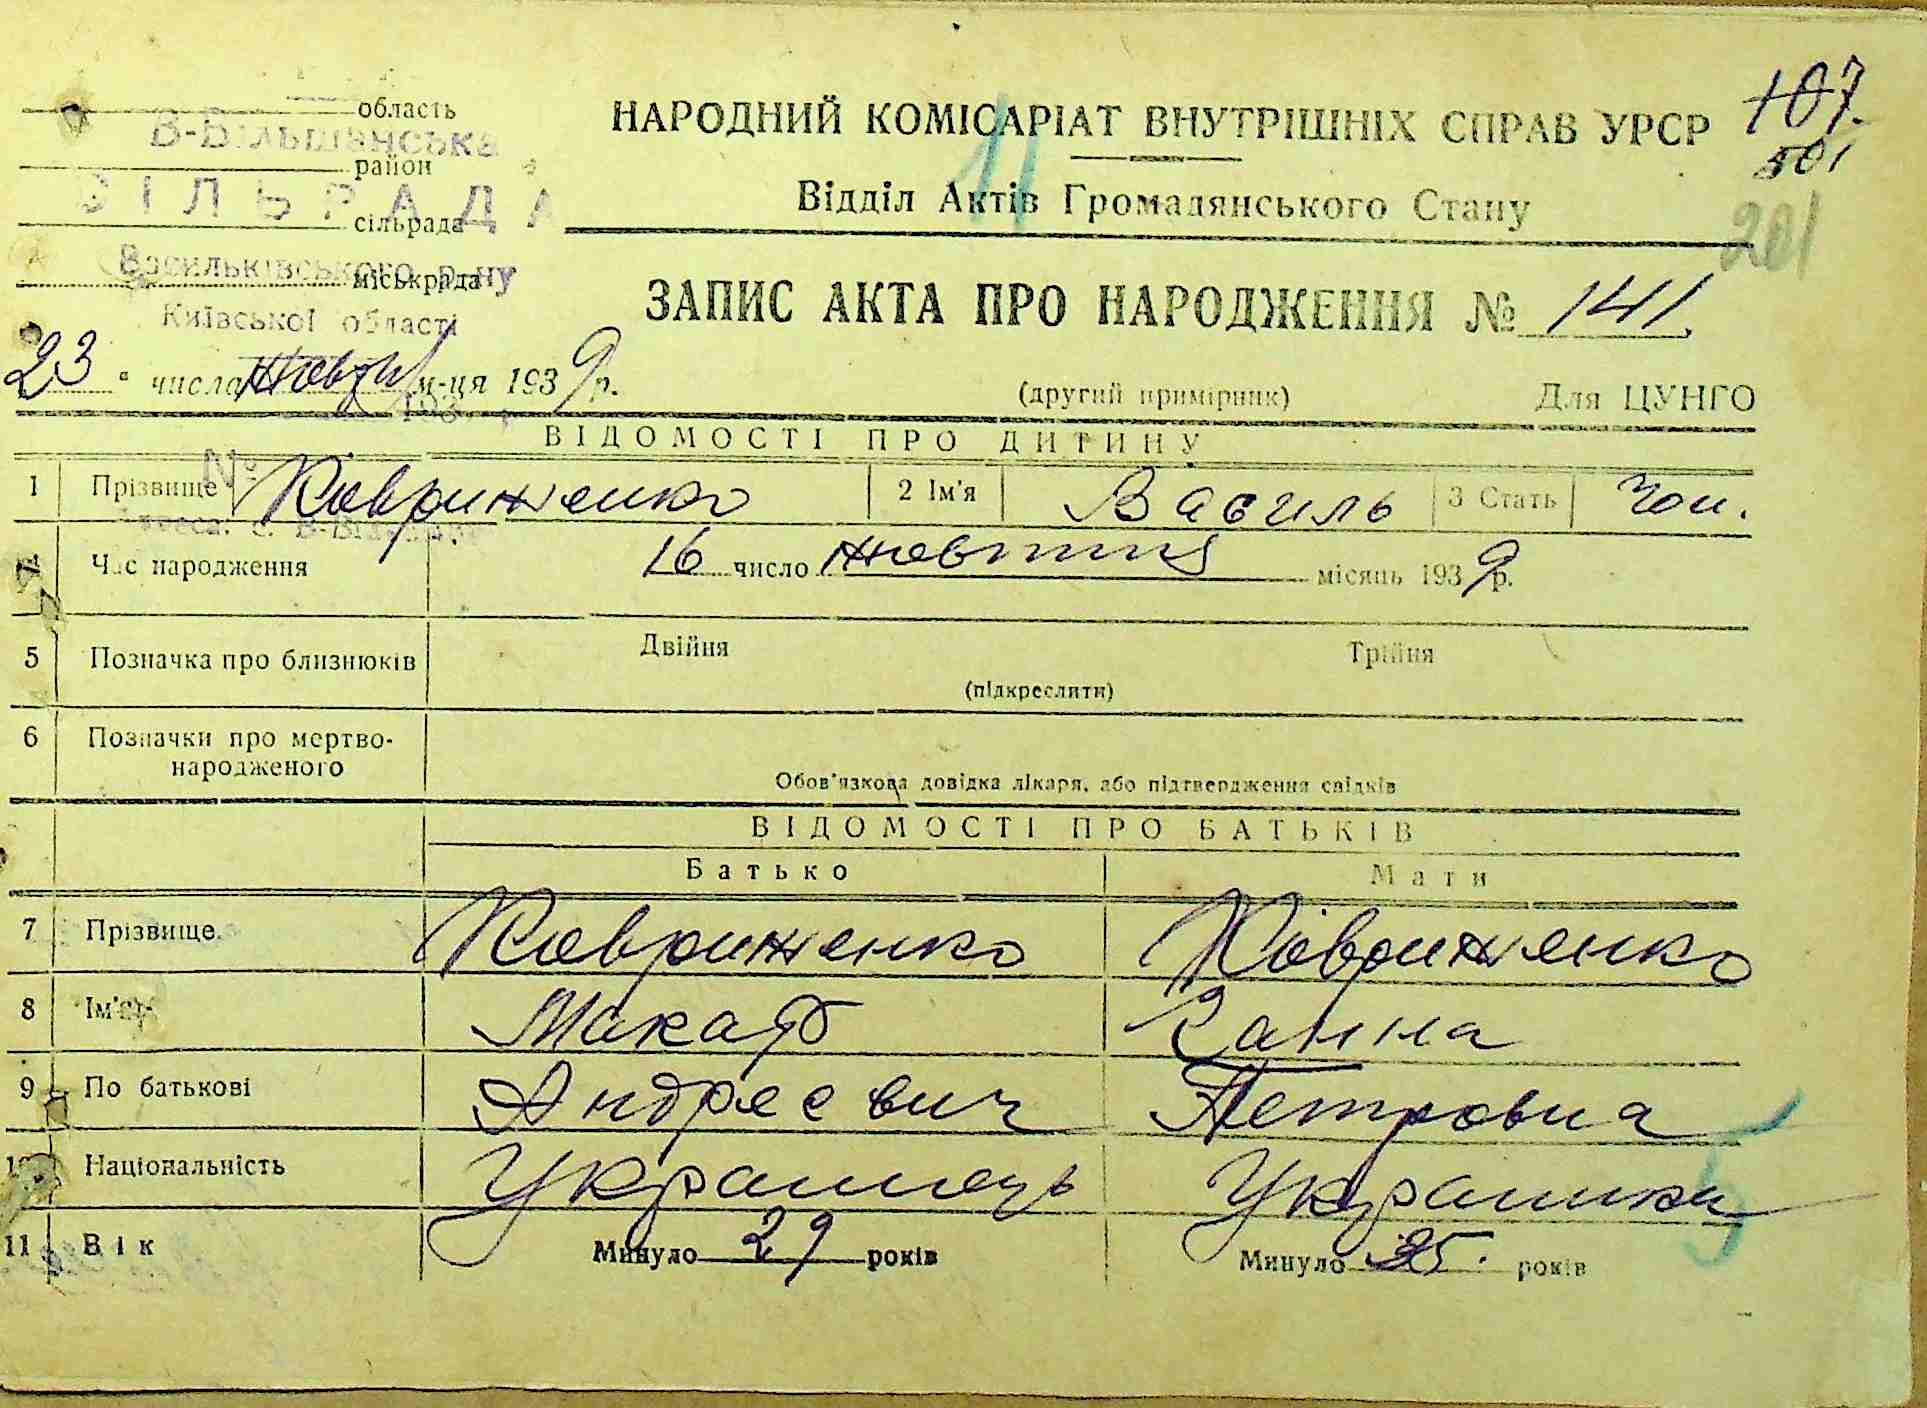 область
В-Більшанська
район
СІЛЬРАДА
сільрада
Васильківського р-ну
міськрада
Київської області
НАРОДНИЙ КОМІСАРІАТ ВНУТРІШНІХ СПРАВ УРСР
107.
501
Відділ Актів Громадянського Стану
11
201
ЗАПИС АКТА ПРО НАРОДЖЕННЯ № 141.
23 числа м-ця 1939 р.
(другий примірник) Для ЦУНГО
ВІДОМОСТІ ПРО ДИТИНУ
1 Прізвище Ковриженко 2 Ім'я Василь 3 Стать Чол.
Час народження 16 число жовтня місяць 1939 р.
5 Позначка про близнюків Двійня Трійня
(підкреслити)
6 Позначки про мертво-
народженого
Обов'язкова довідка лікаря, або підтвердження свідків
ВІДОМОСТІ ПРО БАТЬКІВ
Батько Мати
7 Прізвище Ковриженко Ковриженко
8 Ім'я Макар Ганна
9 По батькові Андреевич Петровна
10 Національність Украинець Украинка
11 Вік Минуло 29 років Минуло 25. років
5